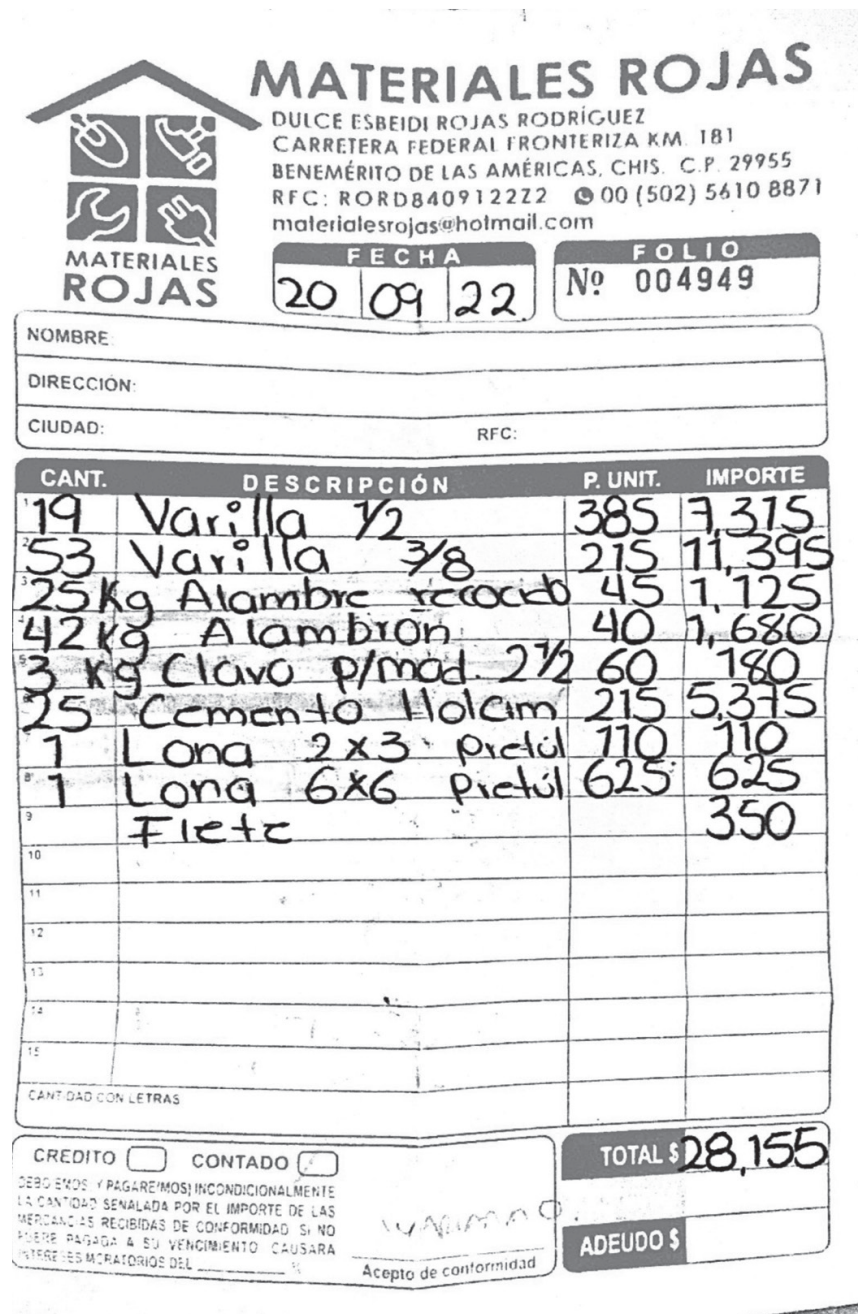 MATERIALES ROJAS
DULCE ESBEIDI ROJAS RODRÍGUEZ
CARRETERA FEDERAL FRONTERIZA KM. 181
BENEMÉRITO DE LAS AMÉRICAS, CHIS. C.P. 29955
RFC: RORD8409122Z2 00 (502) 5610 8871
materialesrojas@hotmail.com
MATERIALES
ROJAS
FECHA
20 09 22
FOLIO
Nº 004949
NOMBRE:
DIRECCIÓN:
CIUDAD: RFC:
CANT. DESCRIPCIÓN P. UNIT. IMPORTE
1 19 Varilla 1/2 385 7,315
2 53 Varilla 3/8 215 11,395
3 25 Kg Alambre recocido 45 1,125
4 42 kg Alambron 40 1,680
5 3 Kg Clavo p/mad. 2 1/2 60 180
25 Cemento Holcim 215 5,375
1 Lona 2x3 Pretúl 110 110
8 1 Lona 6x6 Pretúl 625 625
9 Flete 350
10
11
12
13
14
15
CANTIDAD CON LETRAS
CREDITO CONTADO
DEBO(EMOS) Y PAGARE(MOS) INCONDICIONALMENTE
LA CANTIDAD SEÑALADA POR EL IMPORTE DE LAS
MERCANCIAS RECIBIDAS DE CONFORMIDAD SI NO
FUERE PAGADA A SU VENCIMIENTO CAUSARA
INTERESES MORATORIOS DEL %
Acepto de conformidad
TOTAL $ 28,155
ADEUDO $